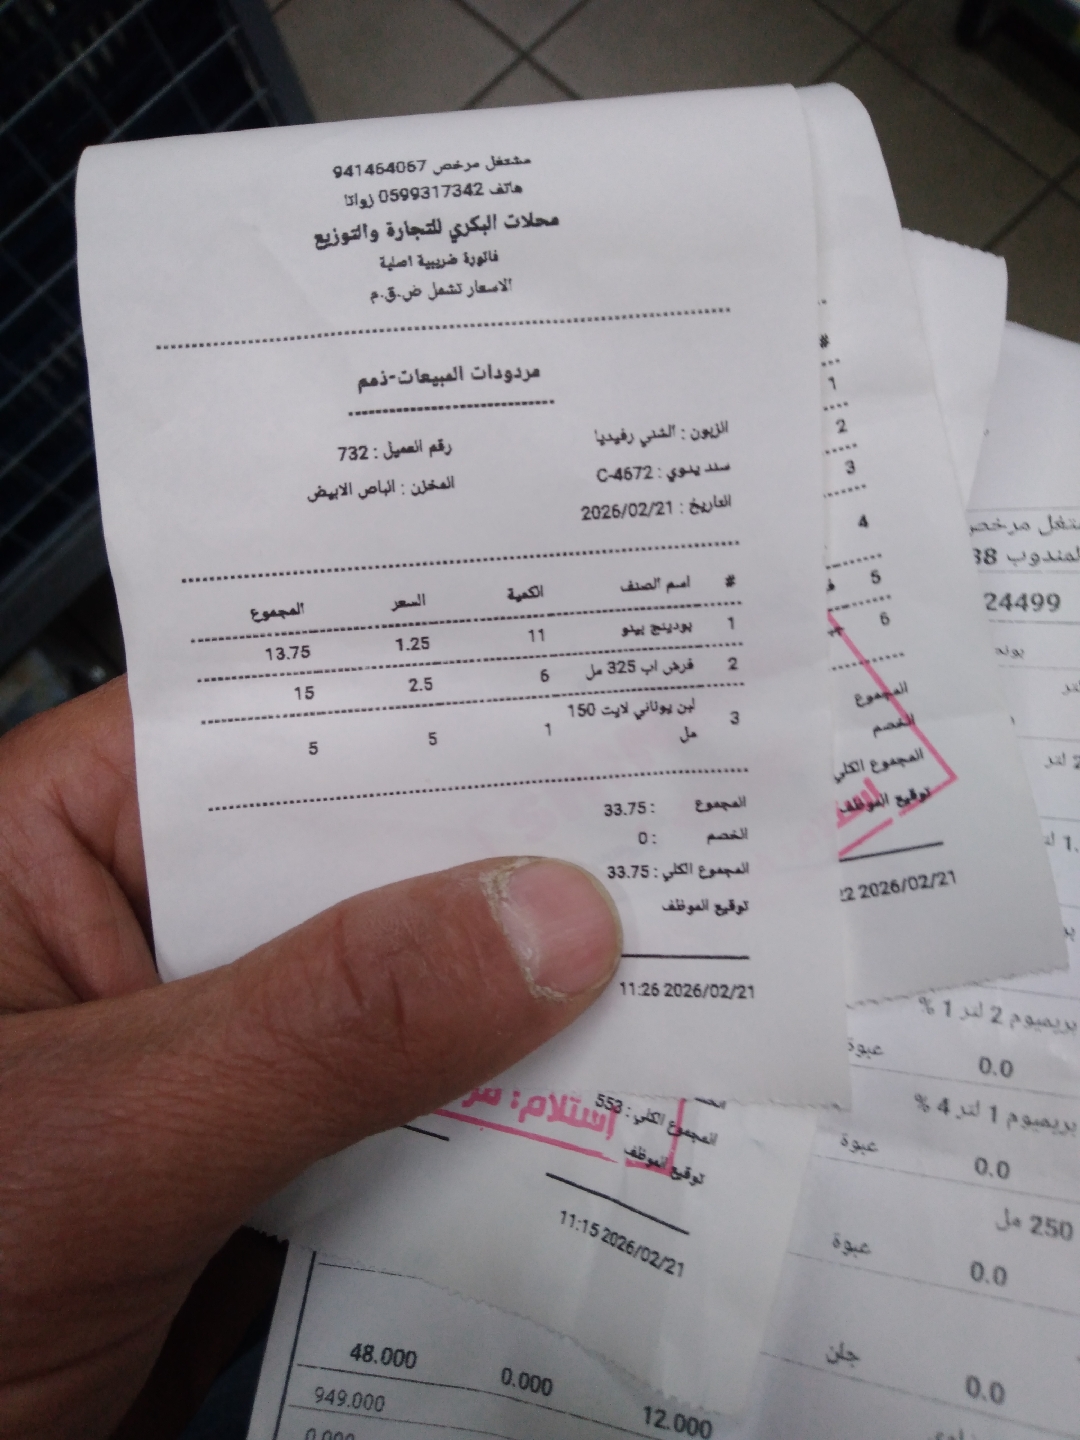 مشتغل مرخص 941464067
هاتف 0599317342 زواتا
محلات البكري للتجارة والتوزيع
فاتورة ضريبية اصلية
الاسعار تشمل ض.ق.م
مردودات المبيعات-ذمم
الزبون : الشني رفيديا رقم العميل : 732
سند يدوي : C-4672 المخزن : الباص الابيض
التاريخ : 2026/02/21
# اسم الصنف الكمية السعر المجموع
1 بودينج بينو 11 1.25 13.75
2 فرش اب 325 مل 6 2.5 15
3 لبن يوناني لايت 150 1 5 5
مل
المجموع : 33.75
الخصم : 0
المجموع الكلي : 33.75
توقيع الموظف
11:26 2026/02/21
#
1
2
3
4
5
6
المجموع
الخصم
المجموع الكلي
توقيع الموظف
22 2026/02/21
المجموع الكلي : 553
توقيع الموظف
إستلام:
11:15 2026/02/21
مرخص
المندوب 38
24499
بريميوم 2 لتر 1 %
عبوة 0.0
بريميوم 1 لتر 4 %
عبوة 0.0
250 مل
عبوة 0.0
جلن
0.0
48.000 0.000 12.000
949.000
0.000